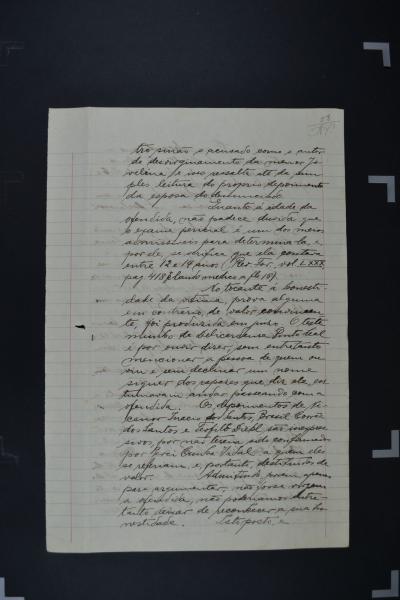 tro sinão o accusado como o autor
do desvirginamento da menor Jo
velina, e isso resalta até da sim
ples leitura do proprio depoimento
da esposa do denunciado
Quanto á edade da
offendida, não padece duvida que
o exame pericial é um dos meios
admissiveis para determinal-a, e
por elle, se verifica que ela contava
entre 12 e 14 anos (Rev. For. vol. LXXX
pag 418, laudo medico a fls 10).
No tocante á hones-
tidade da victima, prova alguma
em contrario, de valor convincen
te, foi produzida em juizo. O teste
munho de
é por ouvir dizer, sem entretanto
mencionar a pessoa de quem ou
viu e sem declinar um nome
siquer dos rapazes que diz ele, cos
tumavam andar passeando com a
offendida. Os depoimentos de
Inacio dos Santos, Brasil
dos Santos e Teofilo são inexpres
sivos, por não terem sido confirmados
por Cunha Vidal a quem eles
se referiram, e, portanto, destituidos de
valor. Admitindo, porém, apenas
para argumentar, não fosse virgem
a offendida, não poderiamos entre-
tanto deixar de reconhecer a sua ho
nestidade. Isto posto, e